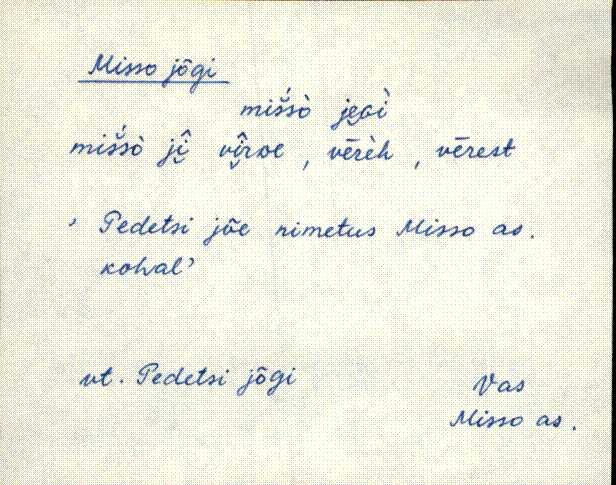 Misso jõgi
miš́sò je̮gì
miš́sò jî̮ vî̮rœ , vērèh , vērest
' Pedetsi jõe nimetus Misso as.
kohal'
vt. Pedetsi jõgi
Vas
Misso as.